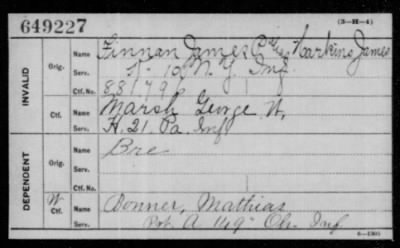 649227
(3-H-4)
INVALID
Orig.
Name Finnan James P alias Harkins James
Serv. K-12 N.Y. Inf.
Ctf. No. 881798
Ctf.
Name Marsh George W.
Serv. H. 21. Pa Inf
DEPENDENT
Orig.
Name Bre
Serv.
Ctf. No.
W
Ctf.
Name Conner, Mathias
Serv. Bat. A 149" Oh. Inf
6-1305